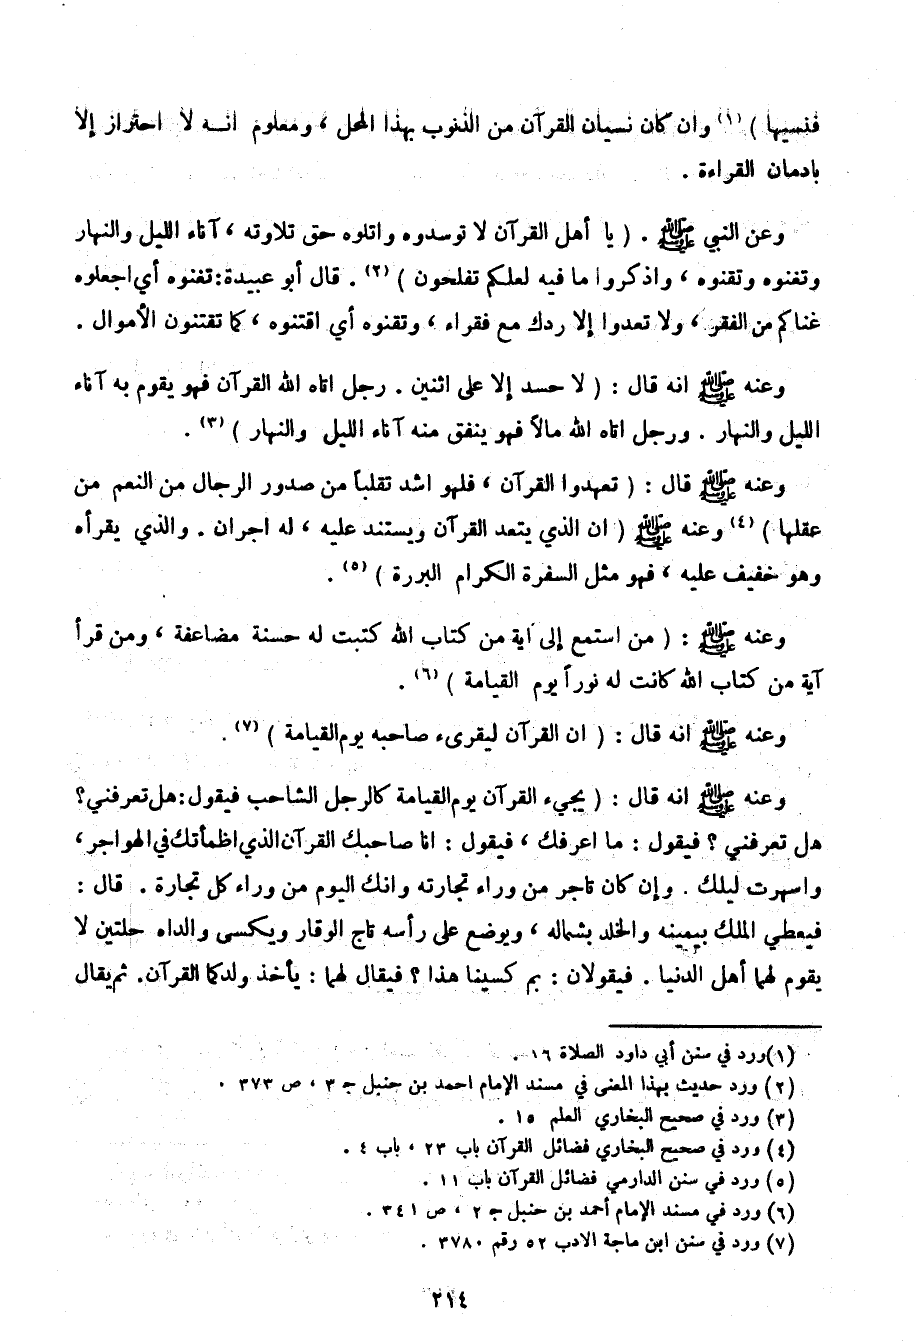 فنسيها ) (١) وان كان نسيان القرآن من الذنوب بهذا المحل ، ومعلوم انه لا احتراز إلا
بادمان القراءة .
وعن النبي ﷺ . ( يا أهل القرآن لا توسدوه واتلوه حق تلاوته ، آناء الليل والنهار
وتغنوه وتقنوه ، واذكروا ما فيه لعلكم تفلحون ) (٢) . قال أبو عبيدة : تغنوه أي اجعلوه
غناكم من الفقر ، ولا تعدوا إلا ردك مع فقراء ، وتقنوه أي اقتنوه ، كما تقتنون الأموال .
وعنه ﷺ انه قال : ( لا حسد إلا على اثنين . رجل اتاه الله القرآن فهو يقوم به آناء
الليل والنهار . ورجل اتاه الله مالاً فهو ينفق منه آناء الليل والنهار ) (٣) .
وعنه ﷺ قال : ( تعهدوا القرآن ، فلهو اشد تقلباً من صدور الرجال من النعم من
عقلها ) (٤) وعنه ﷺ ( ان الذي يتعد القرآن ويستند عليه ، له اجران . والذي يقرأه
وهو خفيف عليه ، فهو مثل السفرة الكرام البررة ) (٥) .
وعنه ﷺ : ( من استمع إلى آية من كتاب الله كتبت له حسنة مضاعفة ، ومن قرأ
آية من كتاب الله كانت له نوراً يوم القيامة ) (٦) .
وعنه ﷺ انه قال : ( ان القرآن ليقرىء صاحبه يوم القيامة ) (٧) .
وعنه ﷺ انه قال : ( يجيء القرآن يوم القيامة كالرجل الشاحب فيقول : هل تعرفني ؟
هل تعرفني ؟ فيقول : ما اعرفك ، فيقول : انا صاحبك القرآن الذي اظمأتك في الهواجر ،
واسهرت ليلك . وإن كان تاجر من وراء تجارته وانك اليوم من وراء كل تجارة . قال :
فيعطي الملك بيمينه والخلد بشماله ، ويوضع على رأسه تاج الوقار ويكسى والداه حلتين لا
يقوم لهما أهل الدنيا . فيقولان : بم كسينا هذا ؟ فيقال لهما : يأخذ ولدكما القرآن . ثم يقال
(١) ورد في سنن أبي داود الصلاة ١٦ .
(٢) ورد حديث بهذا المعنى في مسند الإمام احمد بن حنبل جـ ٣ ، ص ٣٧٣ .
(٣) ورد في صحيح البخاري العلم ١٥ .
(٤) ورد في صحيح البخاري فضائل القرآن باب ٢٣ ، باب ٤ .
(٥) ورد في سنن الدارمي فضائل القرآن باب ١١ .
(٦) ورد في مسند الإمام أحمد بن حنبل جـ ٢ ، ص ٣٤١ .
(٧) ورد في سنن ابن ماجة الادب ٥٢ رقم ٣٧٨٠ .
٢١٤